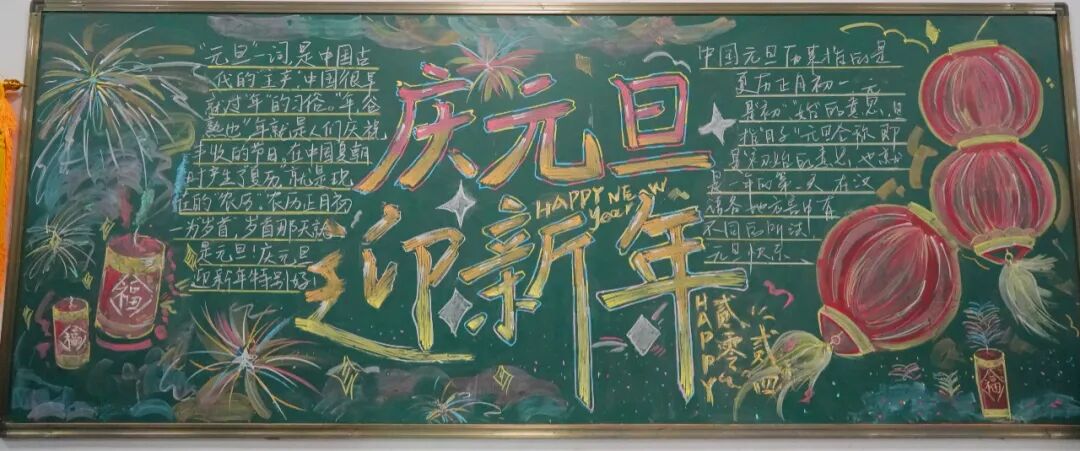 "元旦"一词,是中国古
代的"土产".中国很早
就过"年"的习俗."年谷
熟也"年就是人们庆祝
丰收的节日,在中国夏朝
时产生了夏历"就是现
在的"农历".农历正月初
一为岁首,岁首那天就
是元旦!庆元旦
迎新年特别好!
庆元旦
HAPPY NEW
year
迎新年
HAPPY
贰零
贰四
中国元旦历来指的是
夏历正月初一.元
是"初""始"的意思,旦
指"日子"元旦合称即
是"初始的
是一年的第一天.在汉
不同的叫法!
元旦快乐
福
福
福